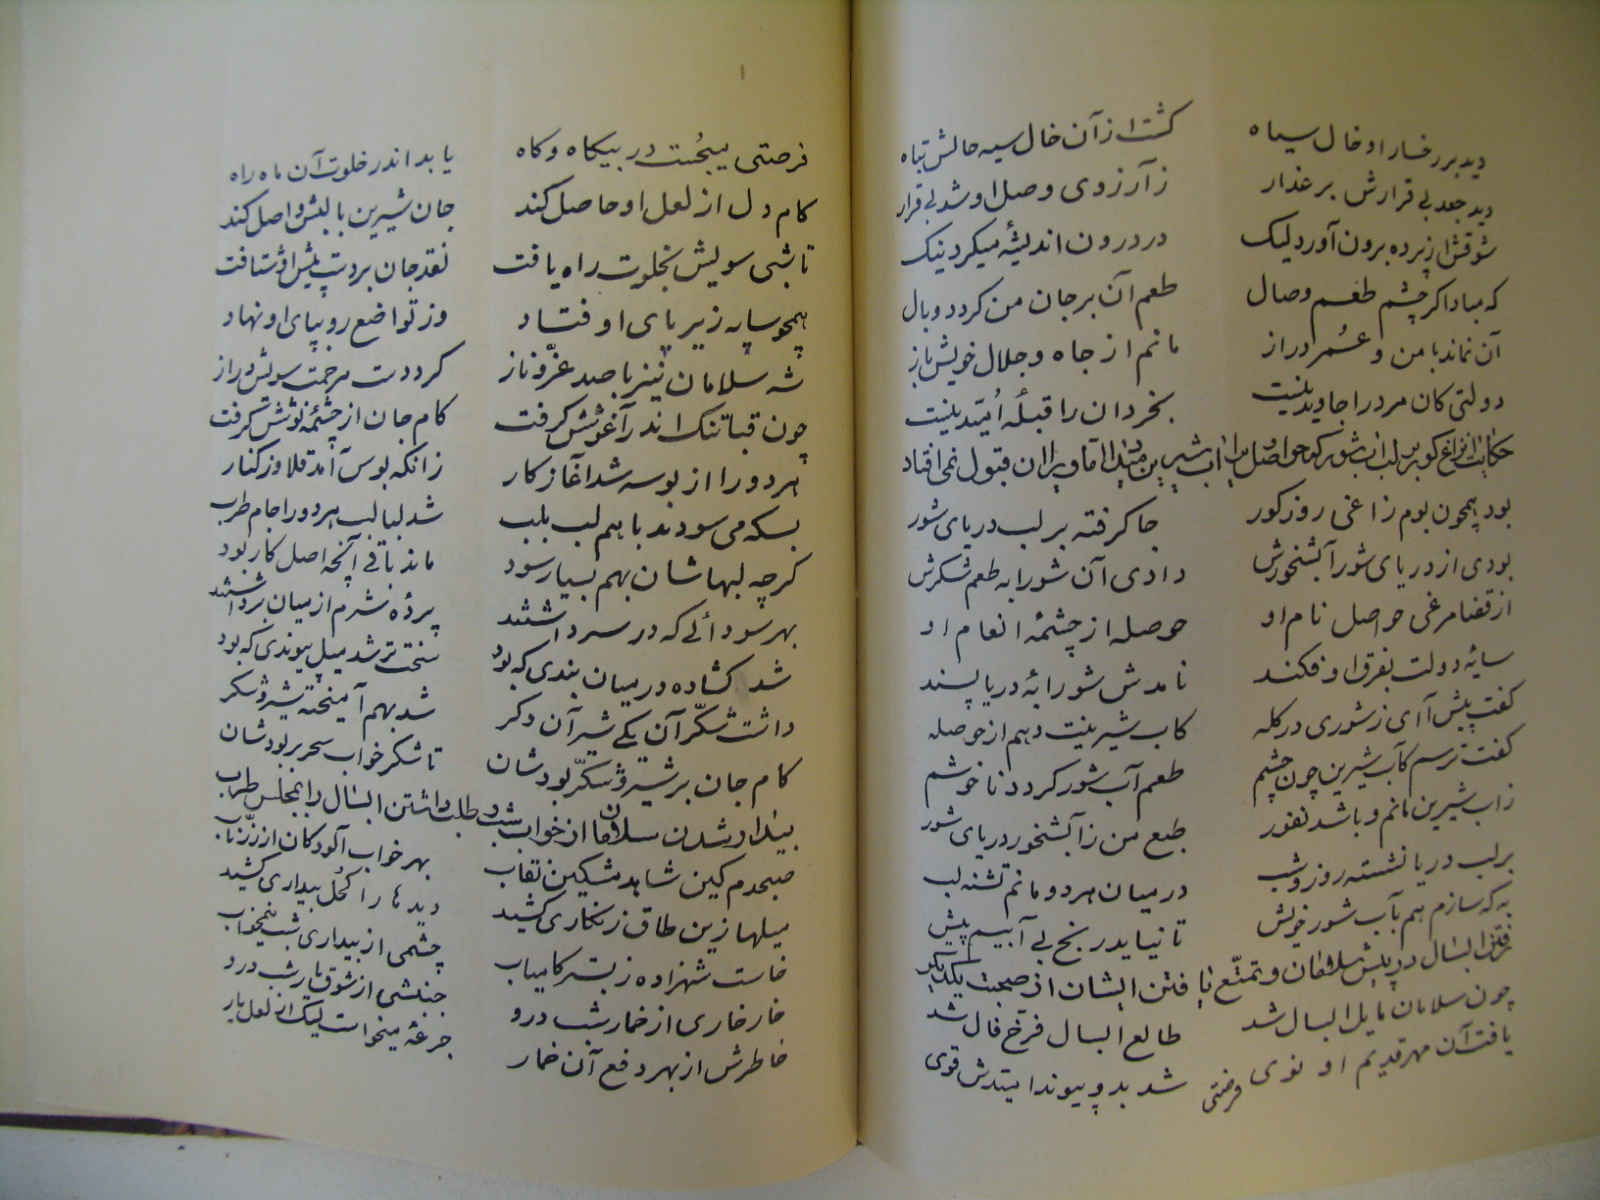 دید بر رخسار او خال سیاه گشت از آن خال سیه حالش تباه
دید جعد بی قرارش بر عذار ز آرزوی وصل او شد بی قرار
شوقش از پرده برون آورد لیک در درون اندیشهٔ میکرد نیک
که مبادا گر چشم طعم وصال طعم آن بر جان من گردد وبال
آن نماند با من و عُمر دراز مانم از جاه و جلال خویش باز
دولتی کان مرد را جاوید نیست بخردان را قبلهٔ اُمّید نیست
حکایت زاغ کور بر لب آب شور که حواصل ویرا آب شیرین میداد اما ویرا آن قبول نمی افتاد
بود همچون بوم زاغی روز کور جا گرفته بر لب دریای شور
بودی از دریای شور آبشخورش دادی آن شورابه طعم شکرش
از قضا مرغی حواصل نام او حوصله از چشمهٔ انعام او
سایهٔ دولت بفرق او فکند نامدش شورابهٔ دریا پسند
گفت پیش آ ای ز شوری در گله کاب شیرینت دهم از حوصله
گفت ترسم کآب شیرین چون چشم طعم آب شور گردد ناخوشم
زاب شیرین مانم و باشد نفور طبع من ز آبشخور دریای شور
بر لب دریا نشسته روز و شب در میان هر دو مانم تشنه لب
به که سازم هم بآب شور خویش تا نیاید رنج بی آبیم پیش
رفتن ابسال در پیش سلامان و تمتّع یافتن ایشان از صحبت یکدیگر
چون سلامان مایل ابسال شد طالع ابسال فرّخ فال شد
یافت آن مهر قدیم او نوی شد بدو پیوند امیدش قوی
فرصتی
فرصتی میجُست در بیگاه و گاه یابد اندر خلوت آن ماه راه
کام دل از لعل او حاصل کند جان شیرین با لبش واصل کند
تا شبی سویش بخلوت راه یافت نقد جان بر دست پیش او شتافت
همچو سایه زیر پای او فتاد وز تواضع رو بپای او نهاد
شه سلامان نیز با صد عزّ و ناز کرد دست مرحمت سویش دراز
چون قبا تنگ اندر آغوشش گرفت کام جان از چشمهٔ نوشش گرفت
هر دو را از بوسه شد آغاز کار زانکه بوس آمد قلاوز کنار
بسکه می سودند با هم لب بلب شد لبالب هر دو را جام طرب
گرچه لبهاشان بهم بسیار سود ماند باقی آنچه اصل کار بود
بهر سودائی که در سر داشتند پردهٔ شرم از میان برداشتند
شد گشاده در میان بندی که بود سخت تر شد میل پیوندی که بود
داشت شکّر آن یکی شیر آن دگر شد بهم آمیخته شیر و شکر
کام جان پر شیر و شکّر بودشان تا شکر خواب سحر بربودشان
بیدار شدن سلامان از خواب شب و طلب داشتن ابسال را بمجلس طرب
صبحدم کین شاهد مشکین نقاب بهر خواب آلودگان از زرّ ناب
میلها زین طاق زنگاری کشید دیدها را کُحل بیداری کشید
خاست شهزاده ز بستر کامیاب چشمی از بیداری شب نیمخواب
خارخاری از خمار شب درو جنبشی از شوق یار شب درو
خاطرش از بهر دفع آن خمار جرعهٔ میخواست لیک از لعل یار